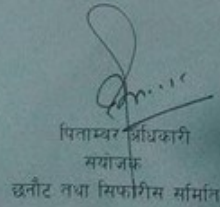 पिताम्बर अधिकारी
संयोजक
छनौट तथा सिफारीस समिति